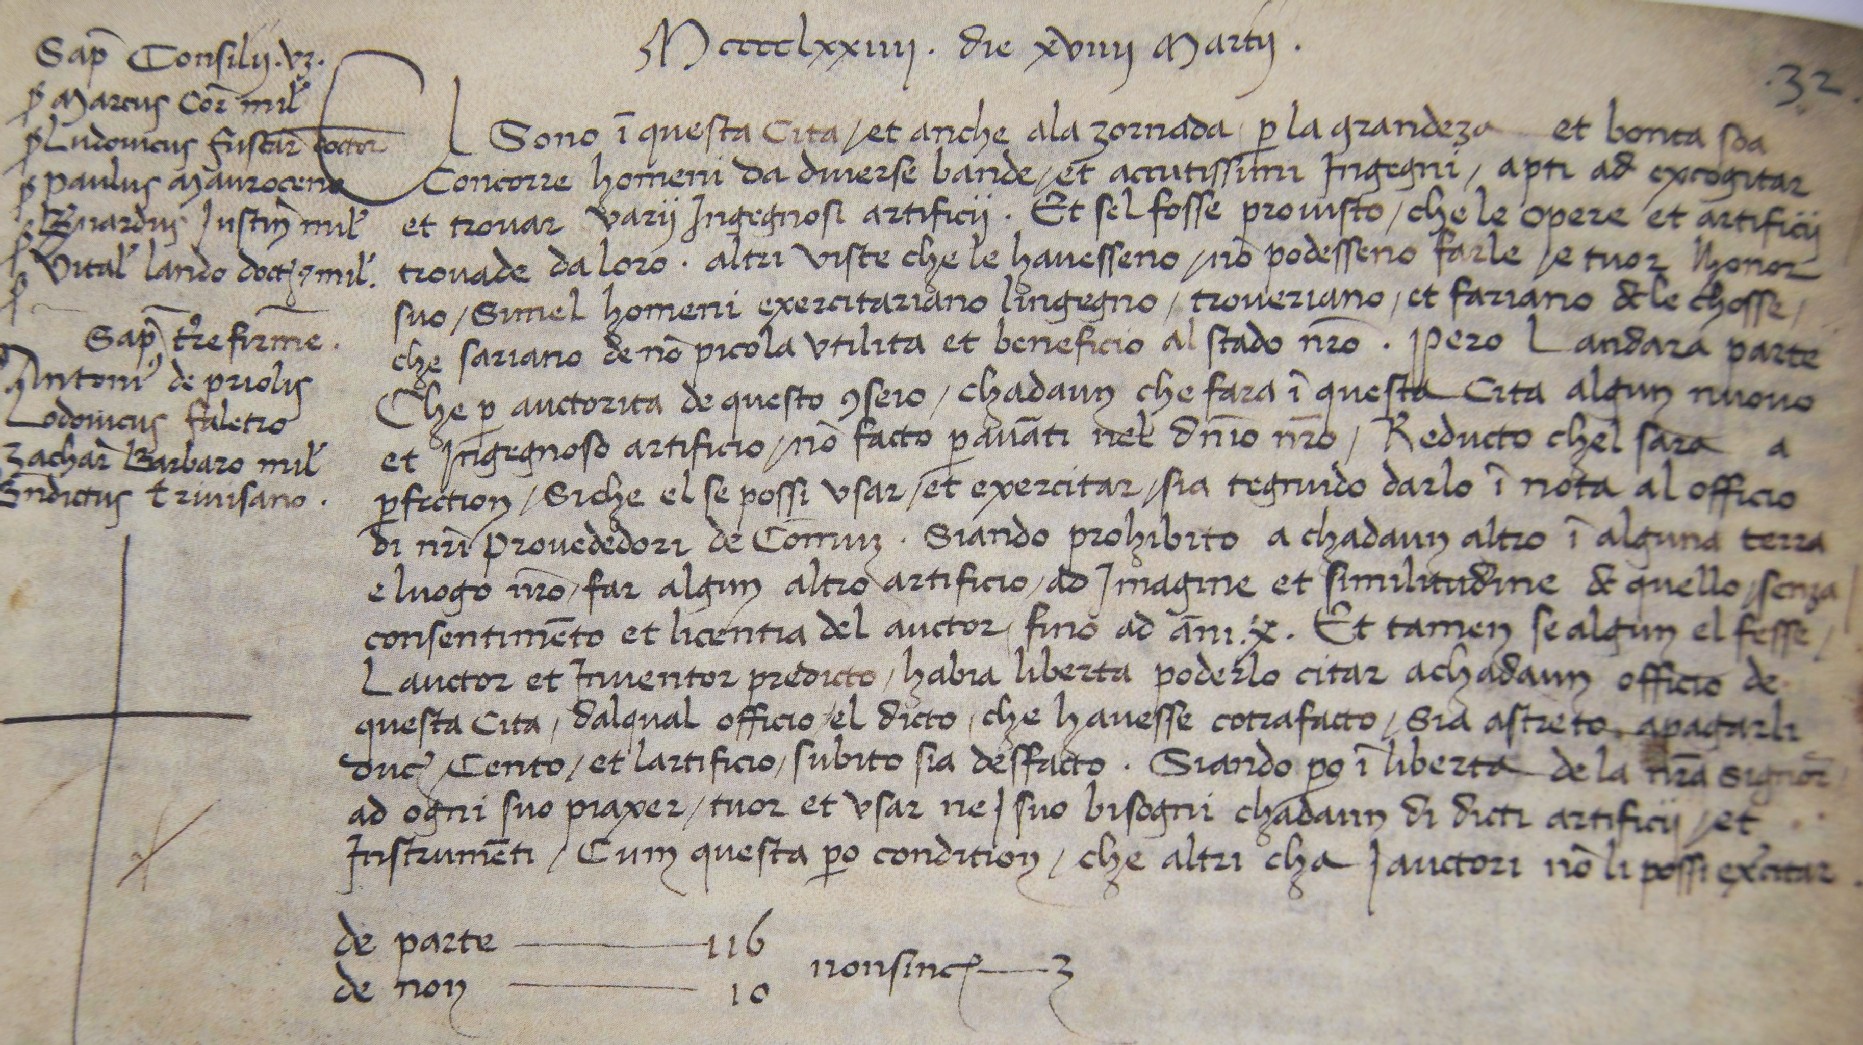 Mcccclxxiiii . die xviiii Martij .
.32.
Sap̄ Consilij . vz .
p̄ Marcus Cor̄ mil̄
p̄ Ludouicus fuscar̄ doctor
p̄ paulus Mauroceno
p̄ Br̄nardus Justin̄ mil̄
p̄ Vital̄ lando doct̄ ⁊ mil̄ .
Sap̄ t̄re firm̄e .
Antoniꝰ de priolis
Lodouicus faletro
Zachar̄ Barbaro mil̄
Bn̄dictus triuisano .
EL Sono ī questa Cita / et anche ala zornada p̱ la grandeza et bonta soa
Concorre homeni da diuerse bande / et accutissimi Ingegni / apti ad excogitar
et trouar varij Ingegnosi artificij . Et sel fosse prouisto / che le opere et artificij
trouade da loro . altri viste che le hauesseno / nō podesseno farle / e tuor lhonor
suo / Simel homeni exercitariano lingegno / troueriano / et fariano de le chosse /
che sariano de nō picola vtilita et beneficio al stado nr̄o . Pero Landara parte
Che p̱ auctorita de questo ꝯseio / chadaun che fara ī questa Cita algun nuouo
et Ingegnoso artificio / nō facto p̱auāti nel dn̄io nr̄o / Reducto chel sara a
p̱fection / Siche el se possi vsar / et exercitar / sia tegnudo darlo ī nota al officio
di nr̄i Prouededori de Comuꝫ . Siando prohibito a chadaun altro ī alguna terra
e luogo nr̄o / far algun altro artificio / ad Imagine et similitudine de quello / senza
consentimēto et licentia del auctor / fino ad āni . x . Et tamen se algun el fesse /
Lauctor et Inuentor predicto / habia liberta poderlo citar a chadaun officio de
questa Cita / dalqual officio / el dicto / che hauesse cōtrafacto / Sia astreto apagarli
duc̄ Cento / et lartificio / subito sia desfacto . Siando p̱o ī liberta de la nr̄a Signor̄
ad ogni suo piaxer / tuor et vsar ne J suo bisogni chadaun di dicti artificij / et
Instrumēti / Cum questa p̱o condition / che altri cha J auctori nō li possi ex̄citar .
de parte 116
de non 10
nonsinc̄ 3